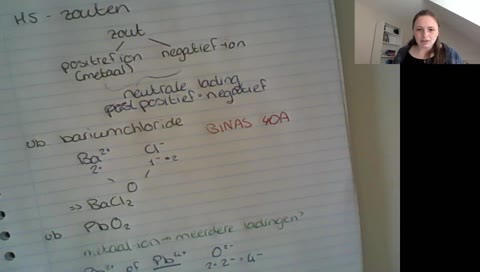 H5 - zouten
zout
positief ion negatief ion
(metaal)
neutrale lading
positief = negatief
vb bariumchloride BINAS 40A
Ba²⁺ Cl⁻
2+ 1⁻ ·2
0
=> BaCl₂
vb PbO₂
metaalion → meerdere ladingen?
Pb²⁺ of Pb⁴⁺ O²⁻
2·2⁻=4⁻